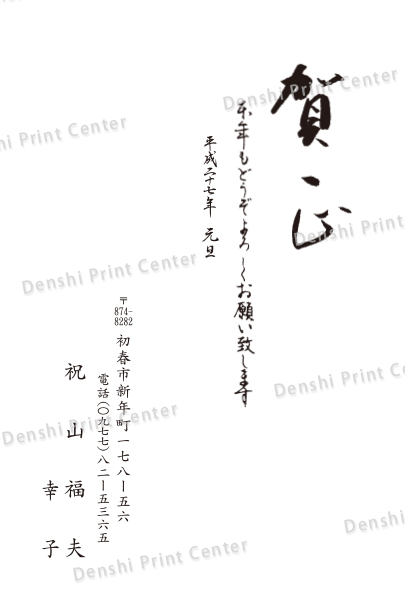 賀正
本年もどうぞよろしくお願い致します
平成二十七年 元旦
〒874-8282
初春市新年町一七八ー五六
電話(〇九七七)八二ー五三六五
祝山福夫
幸子
Denshi Print Center
Denshi Print Center
Denshi Print Center
Denshi Print Center
Denshi Print Center
Denshi Print Center
Denshi Print Center
Denshi Print